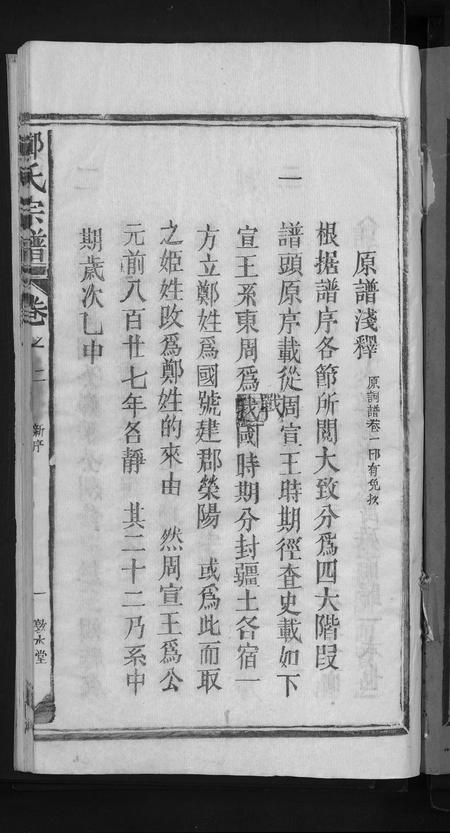 原譜淺釋 原詞譜卷一卽有免抄
根据譜序各節所閱大致分爲四大階段
一 譜頭原序載從周宣王時期徑查史載如下
宣王系東周爲戰國時期分封疆土各宿一
方立鄭姓爲國號建郡滎陽 或爲此而取
之姬姓改爲鄭姓的來由 然周宣王爲公
元前八百廿七年各靜 其二十二乃系中
期歲次乙申
鄭氏宗譜 卷之二 新序 一 敦本堂